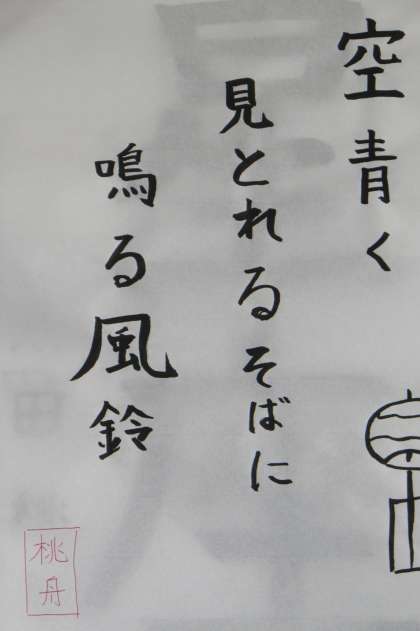 空青く
見とれるそばに
鳴る風鈴
桃舟